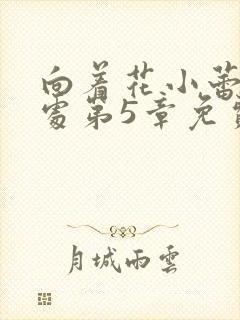 向着花小蕾
处第5章免费
月城雨雲